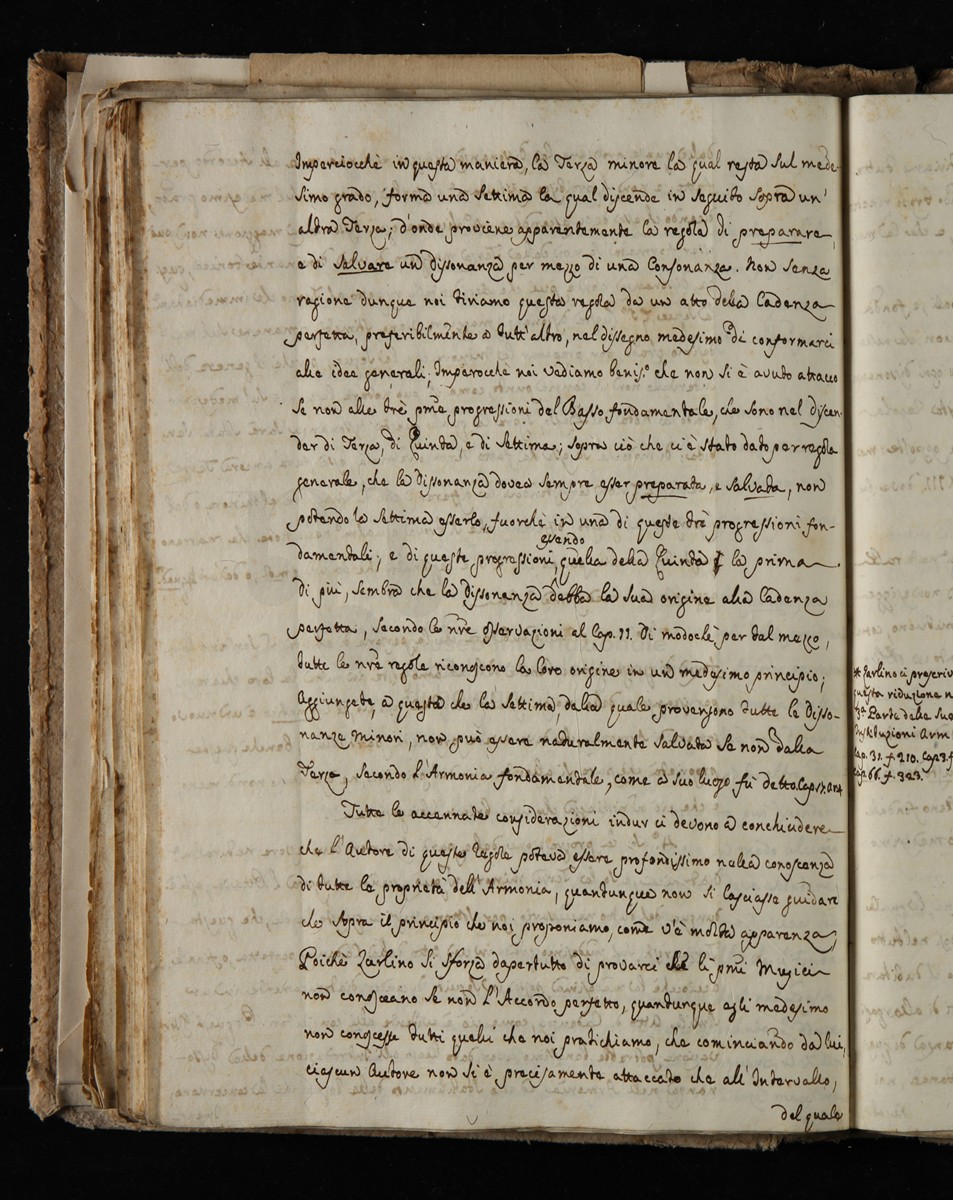 Imperciocchè in questa maniera, la Terza minore la qual resta sul mede-
simo grado, forma una settima la qual discende in seguito sopra un'
altra Terza; d'onde proviene apparentemente la regola di preparare,
e di salvare una dissonanza per mezzo di una Consonanza. Non senza
ragione dunque noi tiriamo questa regola da un atto della Cadenza
perfetta, preferibilmente a tutt'altro, nel dissegno medesimo di conformarci
alle idee generali; Imperocchè noi vediamo beniss.o che non si è avuto attacco
se non alle trè pme progressioni del Basso fondamentale, che sono nel discen-
der di Terza, di Quinta, e di settima; sopra ciò che ci è stato dato per regola
generale, che la dissonanza dovea sempre esser preparata, e salvata, non
potendo la settima esserlo, fuorchè in una di queste trè progressioni fon-
damentali; e di queste progressioni, essendo quella della Quinta la prima.
Di più, sembra che la dissonanza debba la sua origine alla Cadenza
perfetta, secondo le nre osservazioni al Cap. 11. Di modochè per tal mezzo,
tutte le nre regole riconoscono la loro origine in un medesimo principio;
Aggiungete a questo che la settima, dalla quale provengono tutte le disso-
nanze minori, non può essere naturalmente salvata se non dalla
Terza, secondo l'Armonia fondamentale, come a suo luogo fù detto. Cap.
Tutte le accennate considerazioni indur ci devono a conchiudere
che l'Autore di queste regole poteva essere profondissimo nella conoscenza
di tutte le proprietà dell'Armonia, quantunque non si lasciasse guidare
che sopra il principio che noi proponiamo, come v'è molta apparenza;
Poichè Zarlino si sforza dapertutto di provarci che li pmi Musici
non conosceano se non l'Accordo perfetto, quantunque egli medesimo
non conoscesse tutti quelli che noi pratichiamo, che cominciando da lui,
ciascun Autore non si è precisamente attaccato che all'Intervallo,
del quale
* Zarlino ci prescriv
questa riduzione n
3a Parte delle sue
Instituzioni Arm
Cap. 31. f. 210. Cap.
Cap. 66. f. 323.